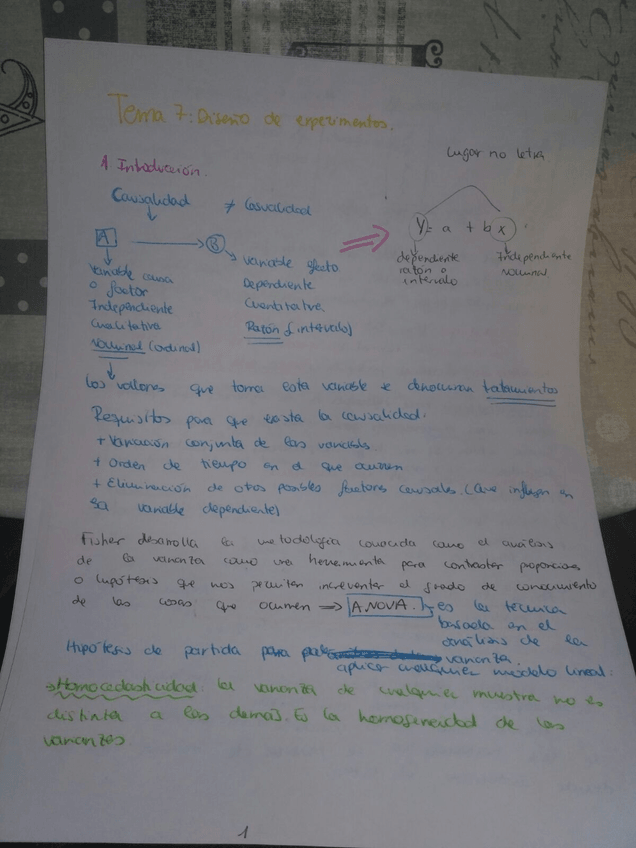 Tema 7: Diseño de experimentos.
Lugar no letra
1. Introducción.
Causalidad ≠ Casualidad
A → B
variable causa
o factor
Independiente
Cualitativa
Nominal (ordinal)
variable efecto
Dependiente
Cuantitativa
Razón (intervalo)
⇒ Y = a + b x
dependiente
razón o
intervalo
Independiente
nominal
Los valores que toma esta variable se denominan tratamientos
Requisitos para que exista la causalidad:
+ Variación conjunta de las variables
+ Orden de tiempo en el que ocurren
+ Eliminación de otros posibles factores causales. (Que influyen en
la variable dependiente)
Fisher desarrolla la metodología conocida como el análisis
de la varianza como una herramienta para contrastar proporciones
o hipótesis que nos permiten incrementar el grado de conocimiento
de las cosas que ocurren ⇒ ANOVA. → es la técnica
basada en el
análisis de la
varianza.
Hipótesis de partida para
aplicar cualquier modelo lineal:
→ Homocedasticidad: la varianza de cualquier muestra no es
distinta a las demás. Es la homogeneidad de las
varianzas
1